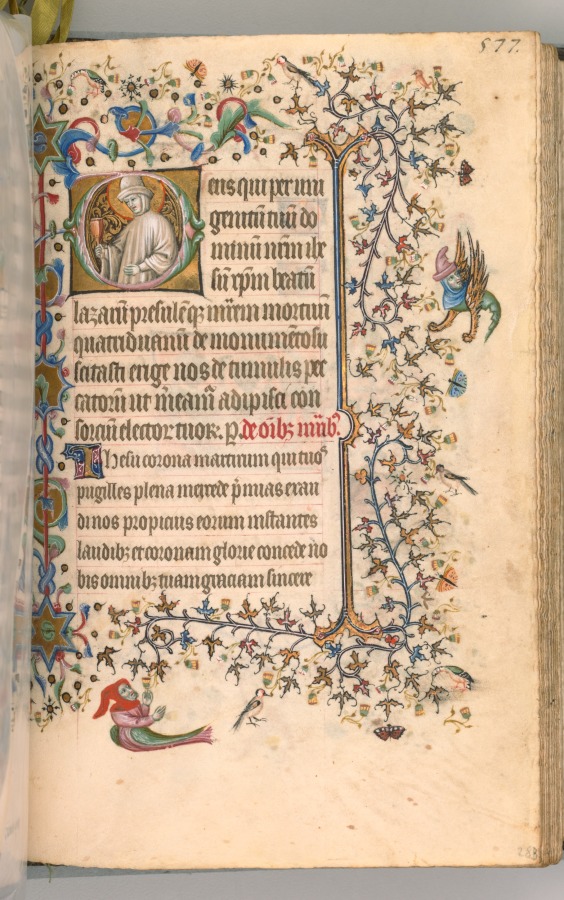 577.
eus qui per uni
genitū tuū do
minū nr̄m ihe
sū xp̄m beatū
lazarū presulēq; mr̄em mortuū
quatriduanū de monumēto su
scitasti erige nos de tumulis pec
catorū ut meam̄ adipisci con
sorciū elector tuoꝝ. p. de oīb; mr̄ib;.
Ihesu corona martirum qui tuos
pugilles plena mercede p̄mias exau
di nos propicius eorum instantes
laudib; et coronam glorie concede no
bis omnib; tuam graciam sincere
288